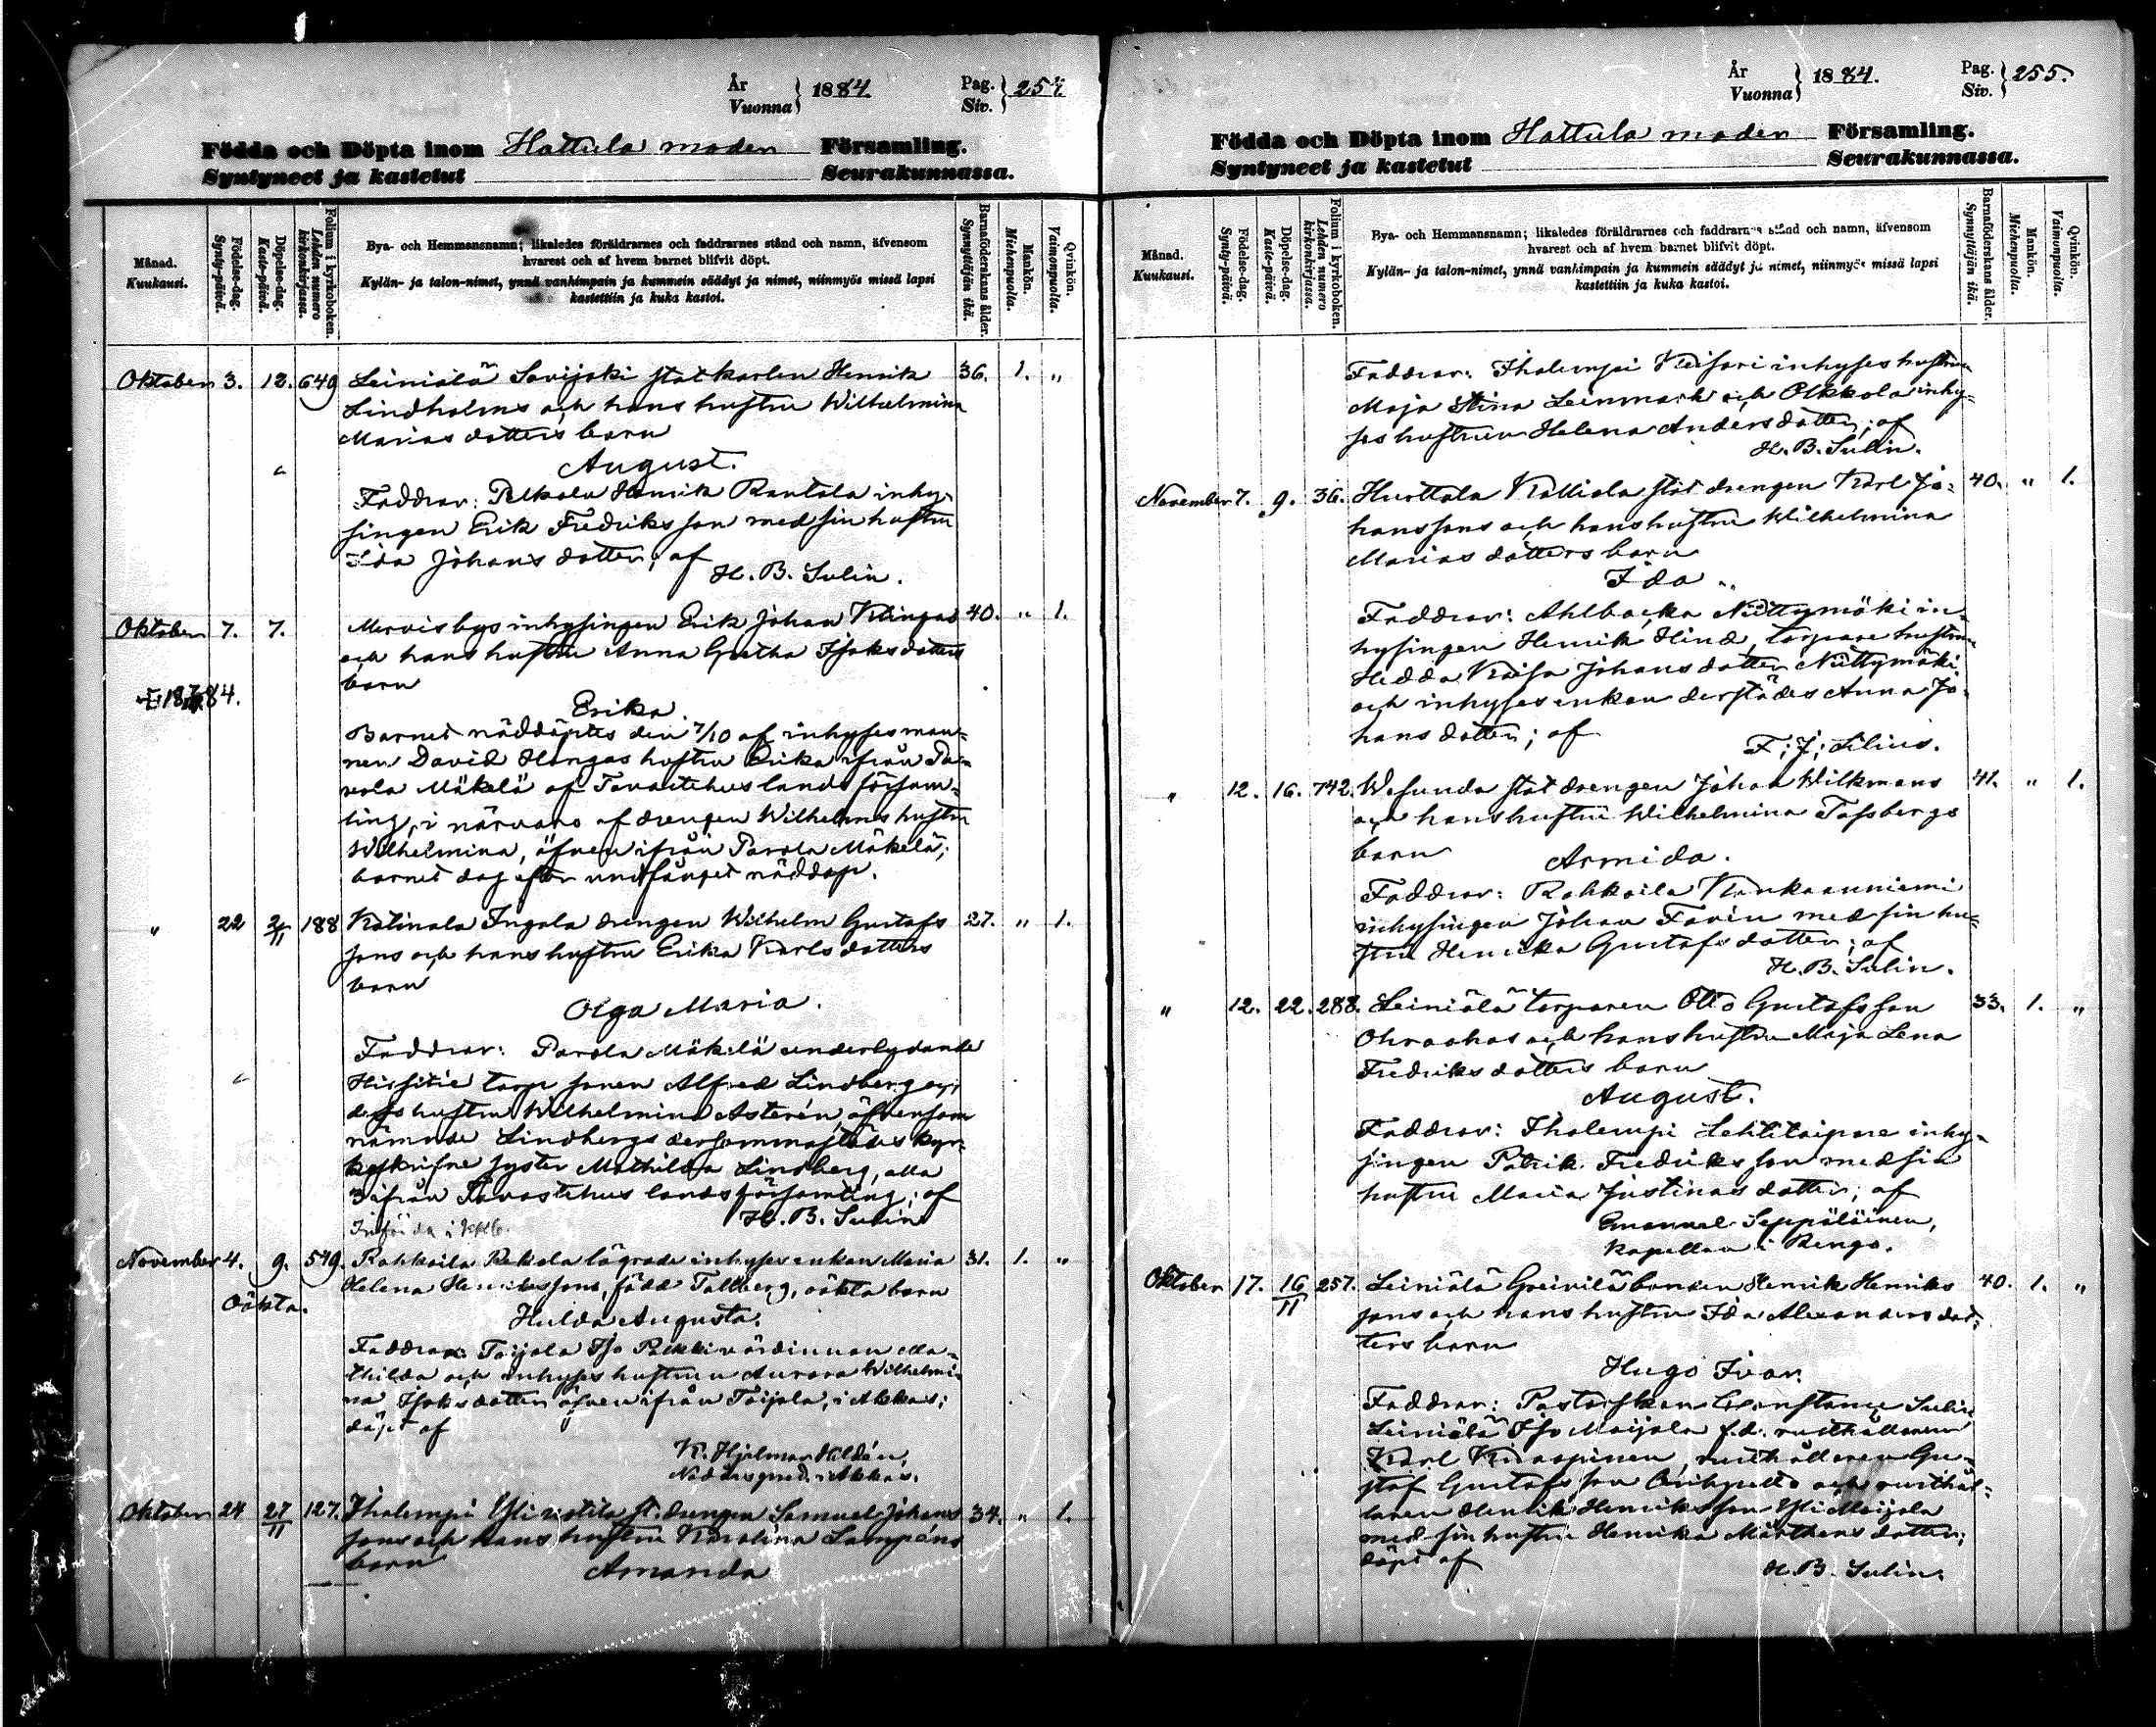 År
Vuonna } 1884
Pag.
Siv. } 254
Födda och Döpta inom Hattula moder Församling.
Syntyneet ja kastetut Seurakunnassa.
Månad.
Kuukausi.
Födelse-dag.
Synty-päivä.
Döpelse-dag.
Kaste-päivä.
Folium i kyrkoboken.
Lehden numero kirkonkirjassa.
Bya- och Hemmansnamn; likaledes föräldrarnes och faddrarnes stånd och namn, äfvensom
hvarest och af hvem barnet blifvit döpt.
Kylän- ja talon-nimet, ynnä vanhimpain ja kummein säädyt ja nimet, niinmyös missä lapsi
kastettiin ja kuka kastoi.
Barnaföderskans ålder.
Synnyttäjän ikä.
Mankön.
Miehenpuolta.
Qvinkön.
Vaimonpuolta.
Oktober 3. 12. 649 Leiniälä Savijoki statkarlen Henrik 36. 1. "
Lindholms och hans hustru Wilhelmina
Mariasdotters barn
August.
Faddrar: Pelkola Henrik Rantala inhy-
singen Erik Fredriksson med sin hustru
Ida Johansdotter; af
H. B. Sulin.
Oktober 7. 7. Mervisbys inhysingen Erik Johan Klingas 40. " 1.
och hans hustru Anna Gretha Isaksdotters
barn
Erika
Barnet nöddöptes den 7/10 af inhysesman-
nen David Hongas hustru Erika ifrån Pa-
rola Mäkelä af Tavastehus lands försam-
ling, i närvaro af drengen Wilhelms hustru
Wilhelmina, äfven ifrån Parola Mäkelä;
barnet dog efter undfånget nöddop.
" 22 2/11 188 Katinala Ingala drengen Wilhelm Gustafs 27. " 1.
sons och hans hustru Erika Karlsdotters
barn
Olga Maria.
Faddrar: Parola Mäkelä underlydande
torp sonen Alfred Lindberg och
dess hustru Wilhelmina Asterén, äfvensom
nämnde Lindbergs dersammastädes kyr-
koskrifne syster Mathilda Lindberg, alla
3 ifrån Tavastehus lands församling; af
H. B. Sulin
November 4. 9. 579. Rahkoila Pekola lägrade inhyses enkan Maria 31. 1. "
Helena Henrikssons, född Tallberg, oäkta barn
Oäkta.
Hulda Augusta.
Faddrar: Toijola Iso Pekki värdinnan Ma-
thilda och inhyses hustrun Aurora Wilhelmi-
na Isaksdotter äfven ifrån Toijola, i Akkas;
döpt af
K. Hjalmar Hildén,
Nådårspred. i Akkas.
Oktober 24 27/11 127. Ihalempi Yli st. drengen Samuel Johans 34. " 1.
sons och hans hustru Karolina Lampéns
barn
Amanda
År
Vuonna } 1884.
Pag.
Siv. } 255.
Födda och Döpta inom Hattula moder Församling.
Syntyneet ja kastetut Seurakunnassa.
Månad.
Kuukausi.
Födelse-dag.
Synty-päivä.
Döpelse-dag.
Kaste-päivä.
Folium i kyrkoboken.
Lehden numero kirkonkirjassa.
Bya- och Hemmansnamn; likaledes föräldrarnes och faddrarnes stånd och namn, äfvensom
hvarest och af hvem barnet blifvit döpt.
Kylän- ja talon-nimet, ynnä vanhimpain ja kummein säädyt ja nimet, niinmyös missä lapsi
kastettiin ja kuka kastoi.
Barnaföderskans ålder.
Synnyttäjän ikä.
Mankön.
Miehenpuolta.
Qvinkön.
Vaimonpuolta.
Faddrar: Ihalempi Keisari inhyses hustru
Maja Stina Leinmark och Olkkola inhy-
ses hustrun Helena Andersdotter; af
H. B. Sulin.
November 7. 9. 36. Hurttala Kalliola stat drengen Karl Jo- 40. " 1.
hanssons och hans hustru Wilhelmina
Mariasdotters barn
Ida.
Faddrar: Ahlbacka Niittymäki in-
hysingen Henrik Hind, torpare hustrun
Hedda Kaisa Johansdotter Niittymäki
och inhyses enkan derstädes Anna Jo-
hansdotter; af
F. J. Lilius.
" 12. 16. 742. Wesunda stat drengen Johan Wilkmans 41. " 1.
och hans hustru Wilhelmina Tassbergs
barn
Armida.
Faddrar: Rahkoila Kankaanniemi
inhysingen Johan Favén med sin hu-
stru Henrika Gustafsdotter; af
H. B. Sulin.
" 12. 22. 288. Leiniälä torparen Otto Gustafsson 33. 1. "
Ohraahos och hans hustru Maja Lena
Fredriksdotters barn
August.
Faddrar: Ihalempi Lehtitaipare inhy-
singen Patrik Fredriksson med sin
hustru Maria Justinasdotter; af
Emanuel Seppäläinen,
Kapellan i Rengo.
Oktober 17. 16/11 257. Leiniälä Greivilä bonden Henrik Henriks 40. 1. "
sons och hans hustru Ida Alexandersdot-
ters barn
Hugo Ivar.
Faddrar: Pastorskan Constance Sulin
Leiniälä Iso Maijala f.d. rusthållaren
Karl rusthållaren Gu-
staf Gustafsson och rusthål-
laren Henrik Henriksson Yli Maijala
med sin hustru Henrika Mårtensdotter;
döpt af
H. B. Sulin.